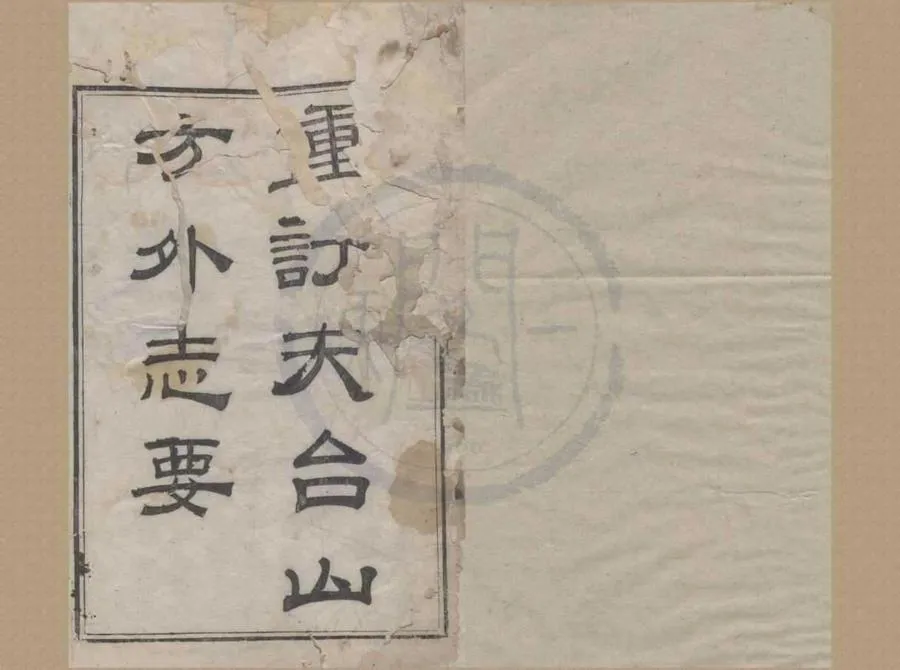 重訂天台山
方外志要